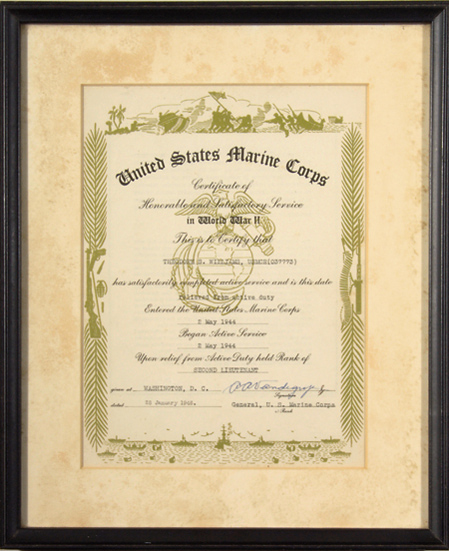 United States Marine Corps
Certificate of
Honorable and Satisfactory Service
in World War II
This is to Certify that
THEODORE S. WILLIAMS, USMCR
has satisfactorily completed active service and is this date
relieved from active duty
Entered the United States Marine Corps
2 May 1944
Began Active Service
2 May 1944
Upon relief from Active Duty held Rank of
SECOND LIEUTENANT
given at WASHINGTON, D. C.
dated January
General, U. S. Marine Corps
Rank